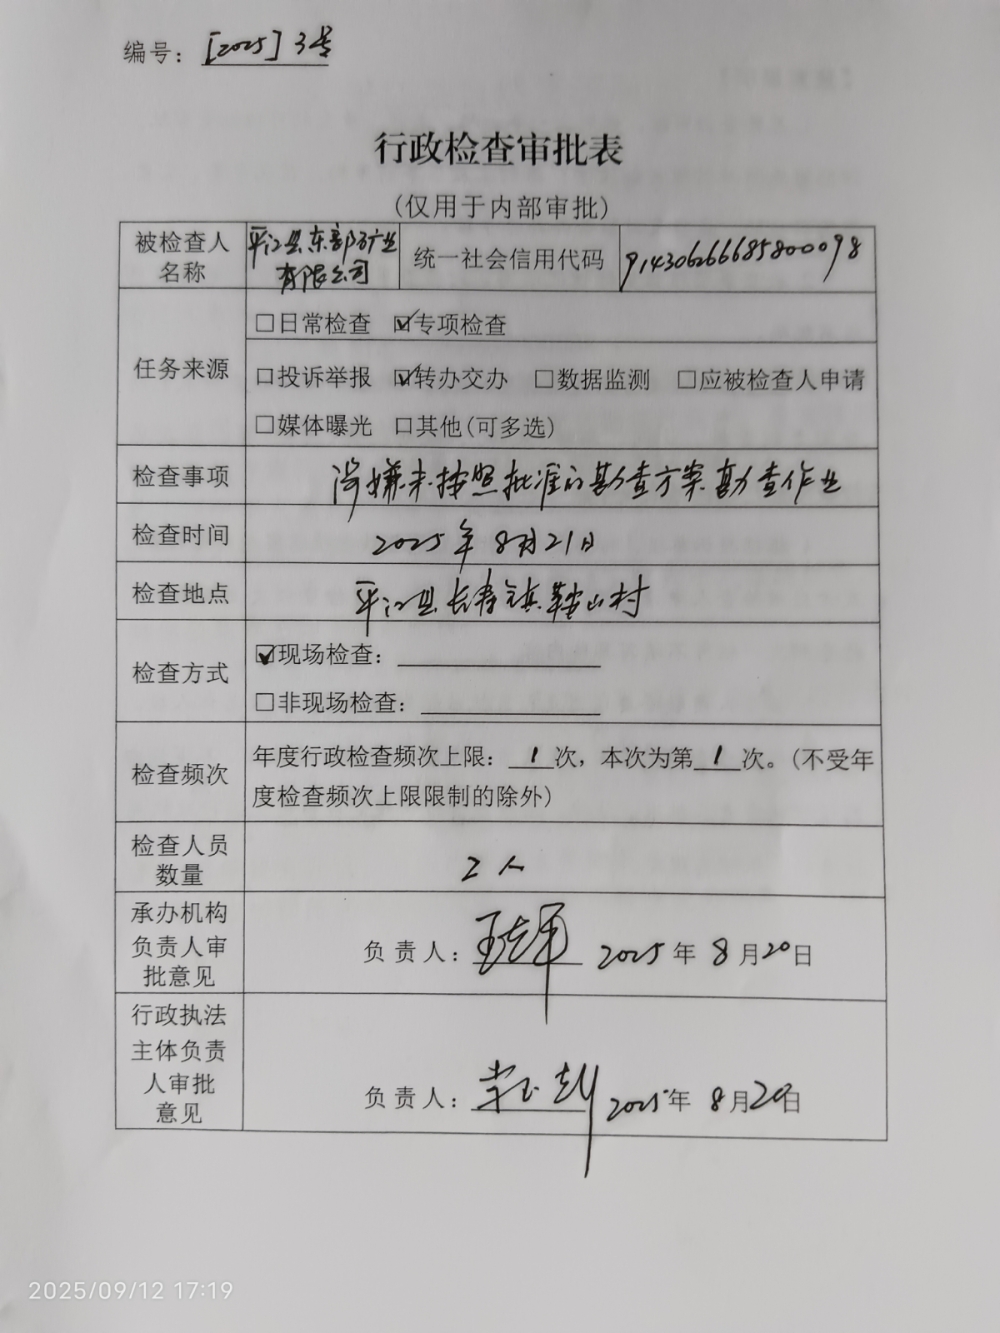 编号：[2025]3号
行政检查审批表
(仅用于内部审批)
被检查人名称 平江县东部矿业有限公司 统一社会信用代码 914306266685800098
任务来源
□日常检查 ☑专项检查
□投诉举报 ☑转办交办 □数据监测 □应被检查人申请
□媒体曝光 □其他(可多选)
检查事项 涉嫌未按照批准的勘查方案勘查作业
检查时间 2025年8月21日
检查地点 平江县长寿镇鞍山村
检查方式
☑现场检查：
□非现场检查：
检查频次
年度行政检查频次上限：1次，本次为第1次。(不受年
度检查频次上限限制的除外)
检查人员
数量
2人
承办机构
负责人审
批意见
负责人： 2025年8月20日
行政执法
主体负责
人审批
意见
负责人： 2025年8月20日
2025/09/12 17:19